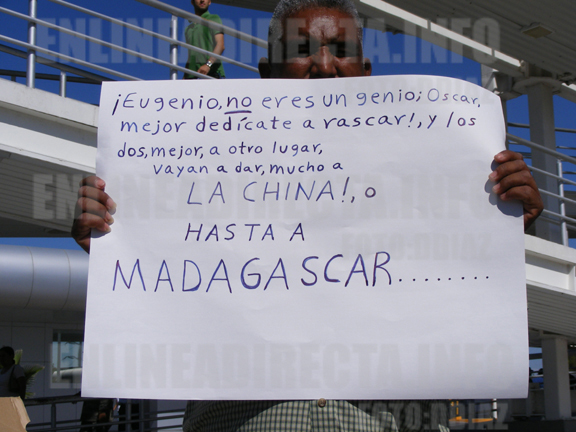 ENLINEADIRECTA.INFO
¡Eugenio, no eres un genio; Oscar,
mejor dedícate a rascar!, y los
dos, mejor, a otro lugar,
vayan a dar, mucho a
LA CHINA!, o
HASTA A
MADAGASCAR........
ENLINEADIRECTA.INFO